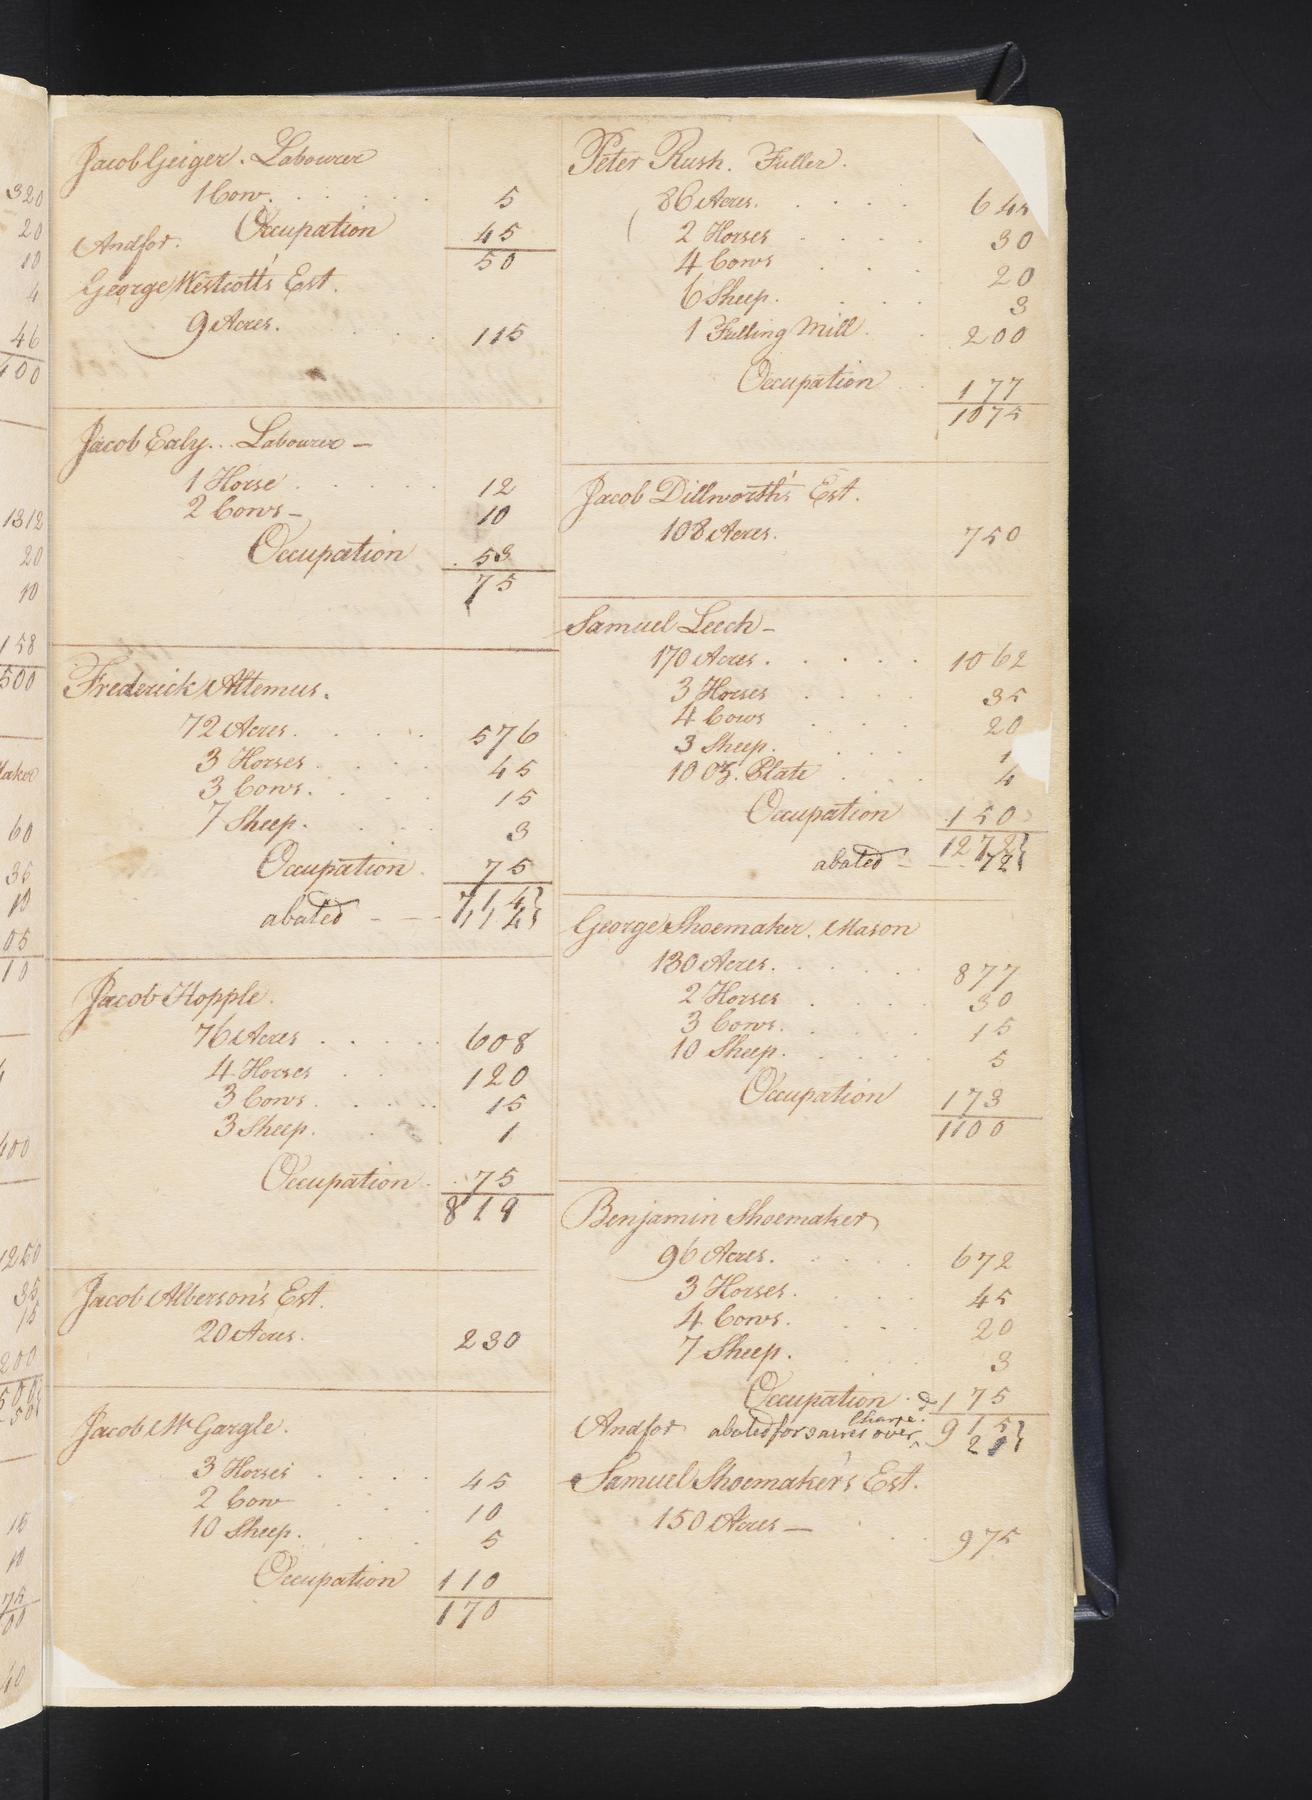 320
20
10
4
46
400
1312
20
10
158
500
Maker
60
35
10
05
10
400
1250
35
15
200
500
50
15
10
75
00
40
Jacob Geiger. Labourer
1 Cow. 5
Occupation 45
Andfor. 50
George Westcott's Est.
9 Acres. 115
Jacob Ealy... Labourer —
1 Horse 12
2 Cows — 10
Occupation 53
75
Frederick Altemus.
72 Acres. 576
3 Horses 45
3 Cows. 15
7 Sheep. 3
Occupation 75
714
abated - — - 114
Jacob Hopple.
76 Acres 608
4 Horses 120
3 Cows 15
3 Sheep. 1
Occupation 75
819
Jacob Alberson's Est.
20 Acres. 230
Jacob Mc Gargle.
3 Horses 45
2 Cow 10
10 Sheep. 5
Occupation 110
170
Peter Rush. Fuller.
86 Acres. 645
2 Horses 30
4 Cows 20
6 Sheep. 3
1 Fulling Mill 200
Occupation 177
1075
Jacob Dillworth's Est.
108 Acres. 750
Samuel Leech —
170 Acres. 1062
3 Horses 35
4 Cows 20
3 Sheep. 1
10 oz. Plate 4
Occupation 150
1272
abated - — - 72
George Shoemaker. Mason
130 Acres. 877
2 Horses 30
3 Cows. 15
10 Sheep. 5
Occupation 173
1100
Benjamin Shoemaker
96 Acres. 672
3 Horses. 45
4 Cows. 20
7 Sheep. 3
Occupation 175
Andfor abated for 3 acres over Charge. 915
21
Samuel Shoemaker's Est.
150 Acres — 975